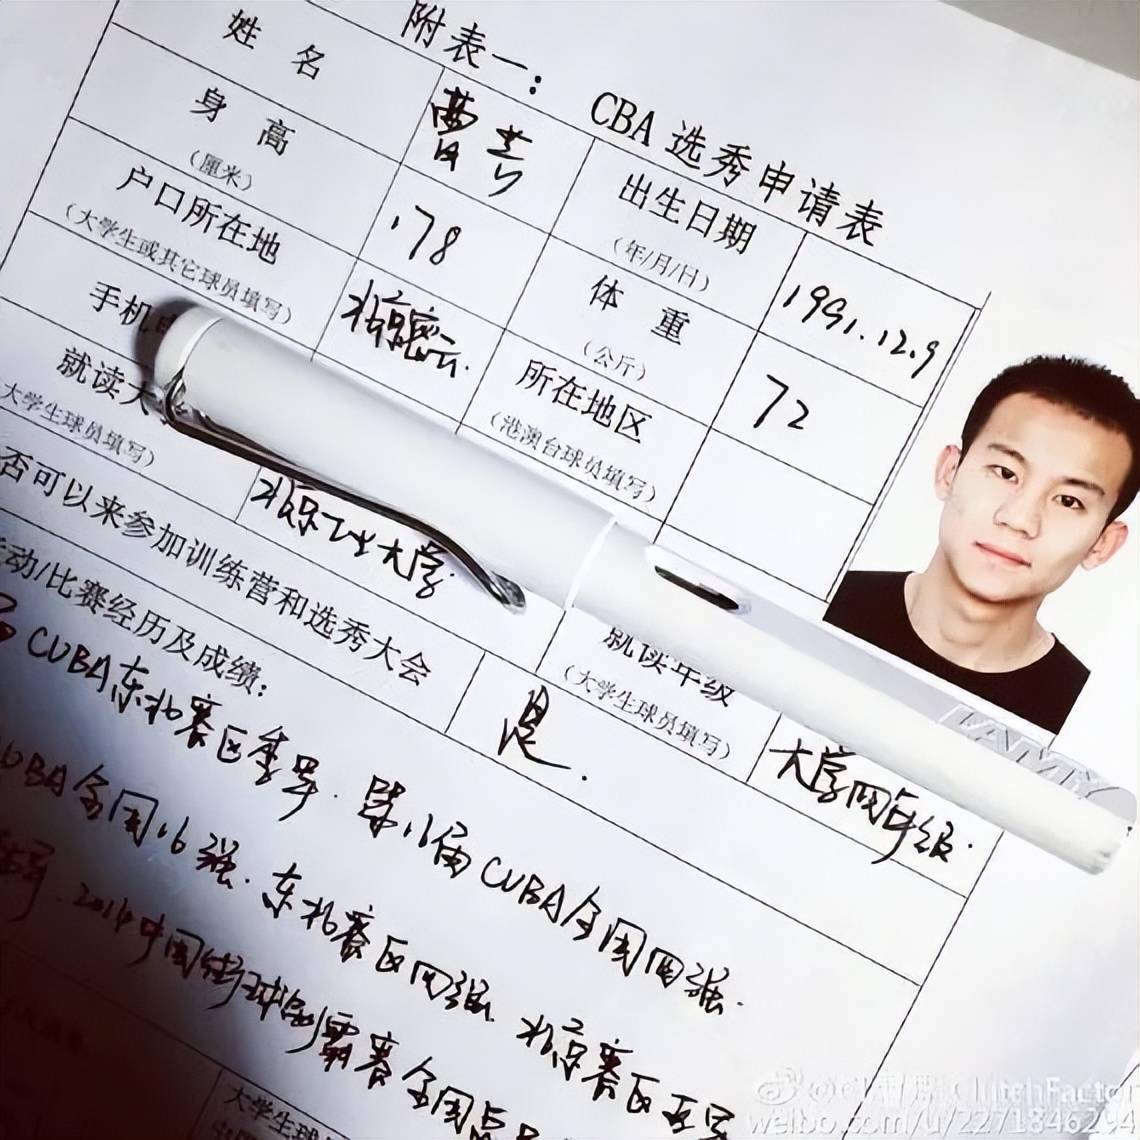 附表一:
CBA 选秀申请表
姓 名
曹芳
出生日期
(年/月/日)
1991.12.9
身 高
(厘米)
178
体 重
(公斤)
72
户口所在地
(大学生或其它球员填写)
北京密云.
所在地区
(港澳台球员填写)
手机
就读大
大学生球员填写)
北京工业大学.
就读年级
(大学生球员填写)
大学四年级.
否可以来参加训练营和选秀大会
是.
动/比赛经历及成绩:
CUBA东北赛区季军. 第16届CUBA全国四强.
CUBA全国16强. 东北赛区四强. 北京赛区亚军
2014中国街球争霸赛全国
大学生球
LAMY
weibo.com/u/2271846294